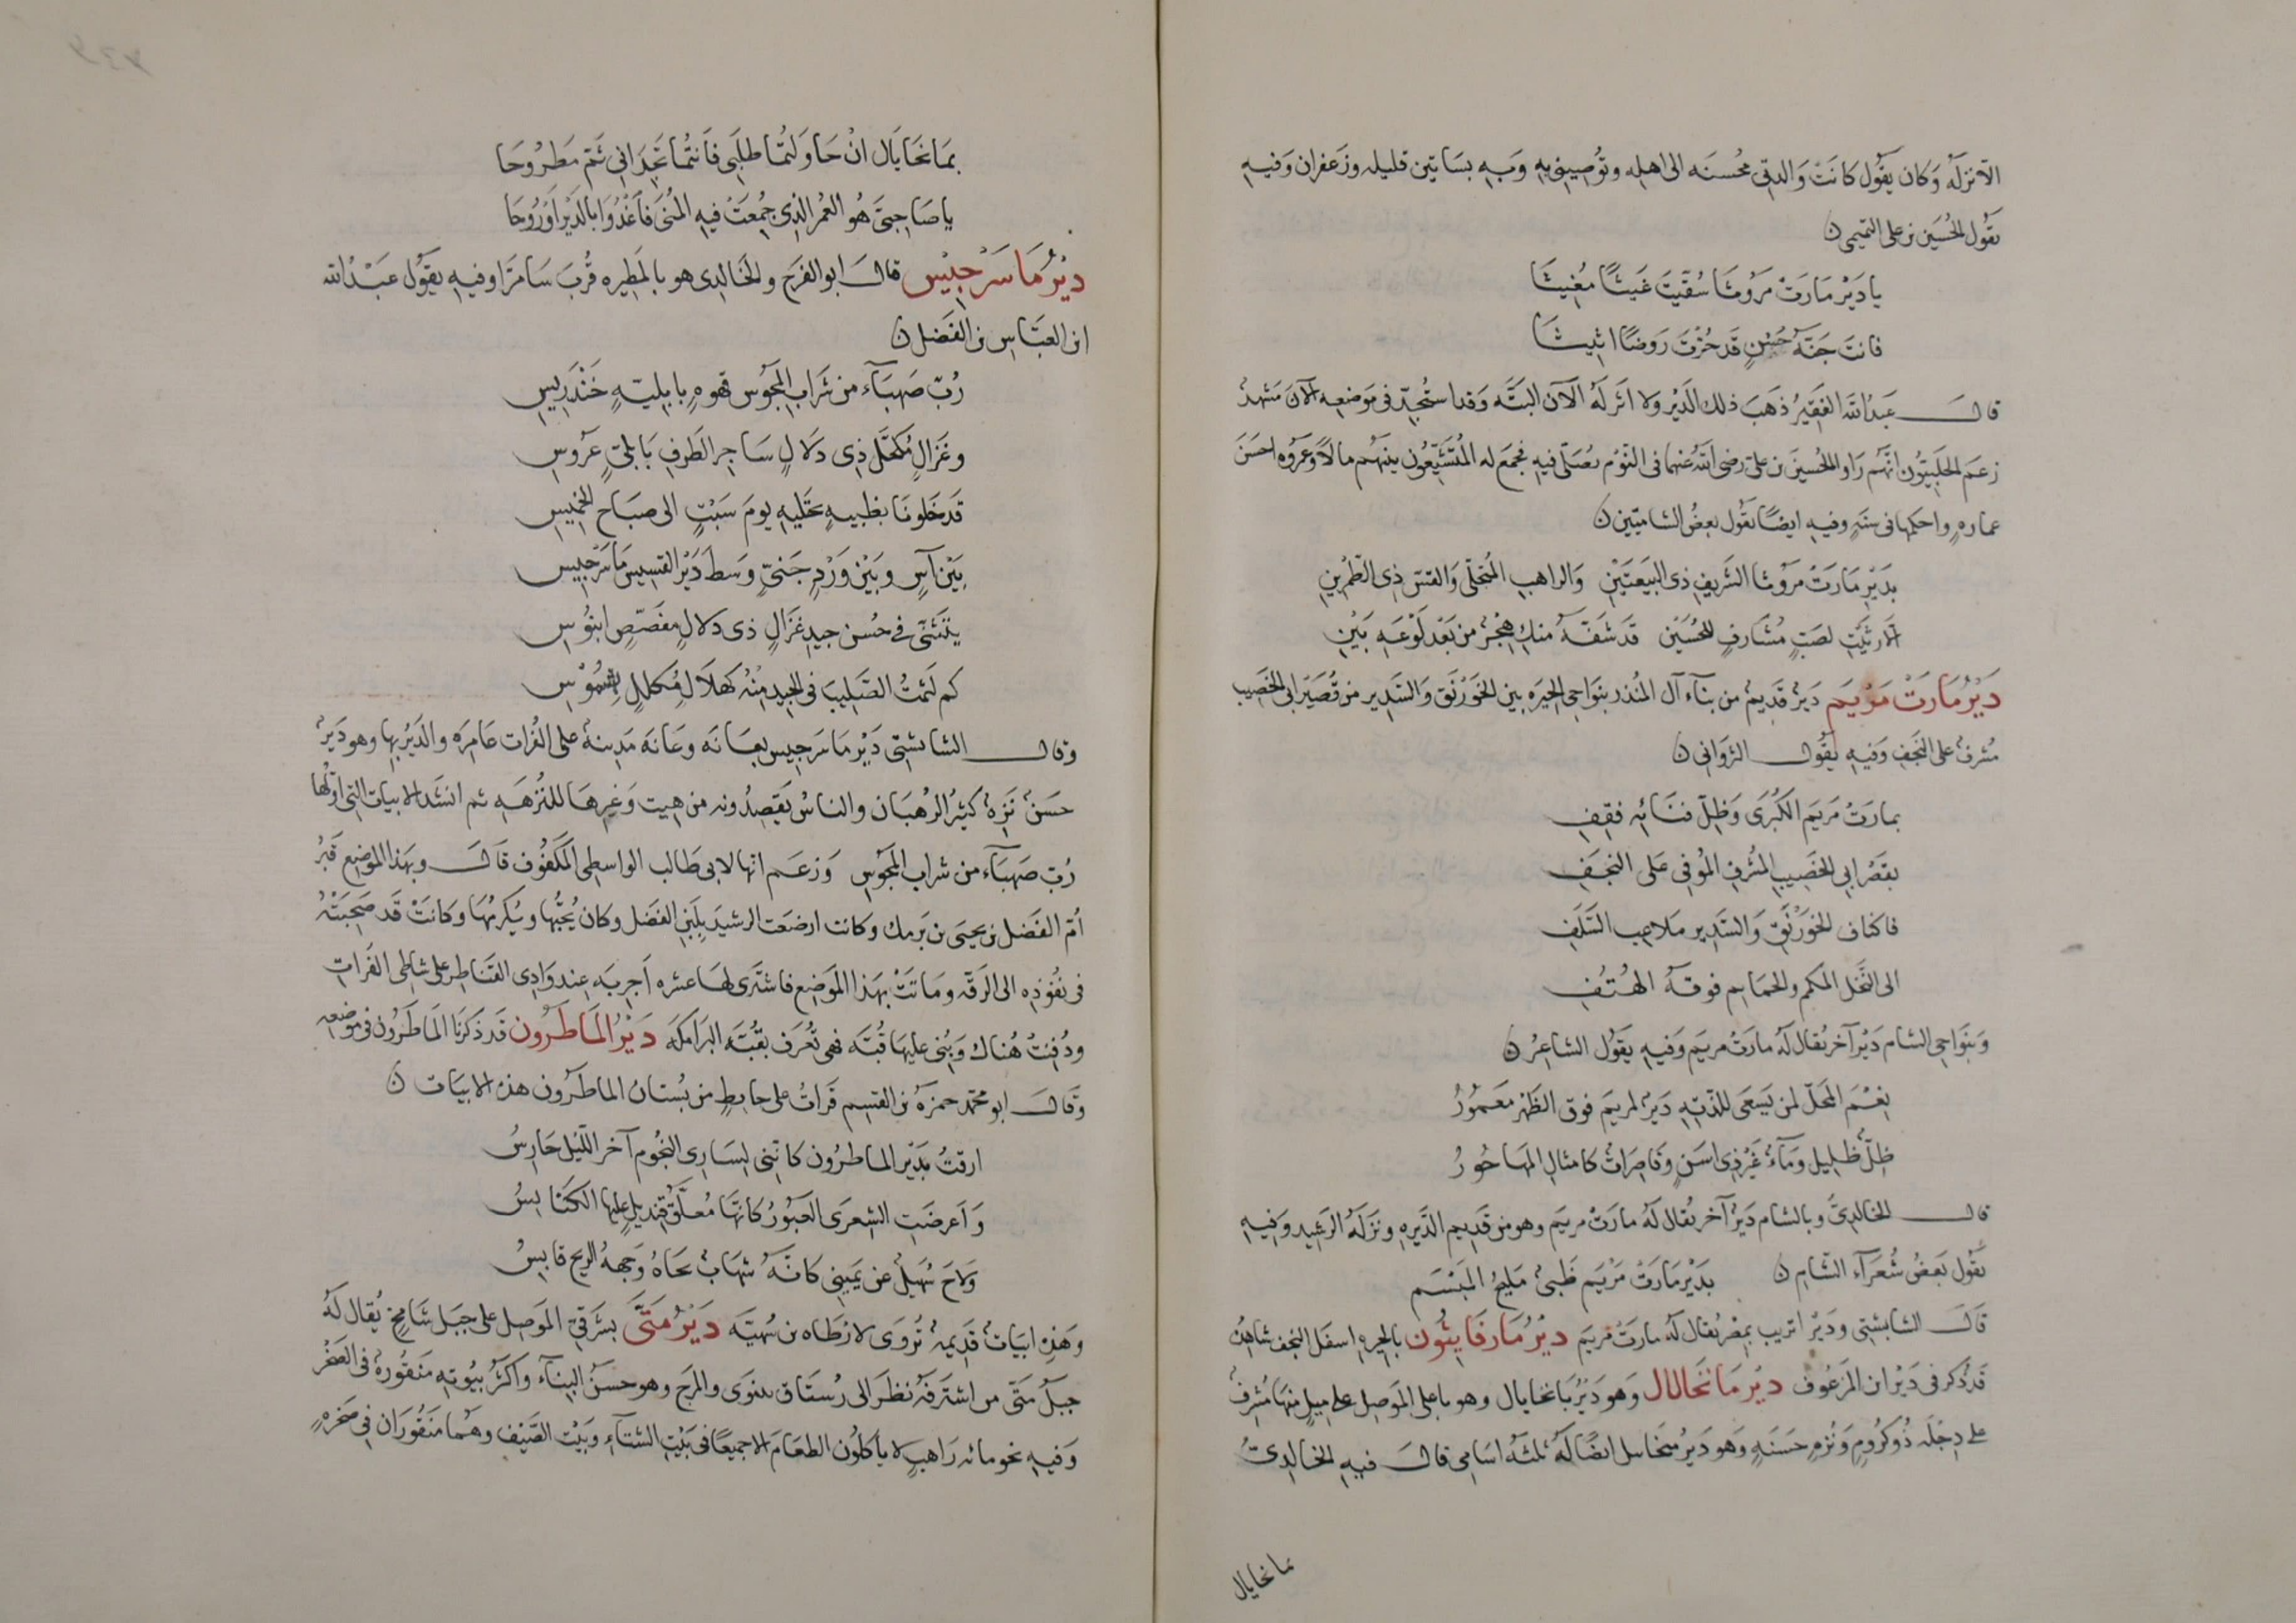 الا نزله وكان يقول كانت والدتى محسنه الى اهله وتوصينى به وبه بساتين قليله وزعفران وفيه
يقول الحسين بن على التميمى ن
يا دَيْر مارَتْ مَرُوثا سُقيتَ غَيثًا مُغيثا
فانت جَنّة حُسْنٍ قد حُزتَ رَوضًا اثيثا
قال عبد الله الفقير ذهب ذلك الدير ولا اثر له الآن البتّه وقد استُجدّ فى موضعه الآن مشهد
زعم الحلبيّون انّهم راوا الحسين بن على رضى الله عنهما فى النوم يصلّى فيه فجمع له المتشيّعون بينهم مالاً وعمروه احسن
عماره واحكمها فى سنه وفيه ايضًا يقول بعض الشاميّين ن
بدير مارت مروثا الشريف ذى البيعتين والراهب المتحلّى والقسّ ذى الطمرين
الّا رثيت لصبّ مشارف للحسين قد شفّه منك هجر من بعد لوعه بين
دير مارت مريم دير قديم من بناء آل المنذر بنواحى الحيره بين الخورنق والسدير من قصير ابى الخصيب
مشرف على النجف وفيه يقول الثروانى ن
بمارت مريم الكبرى وظلّ فنائه فقف
بقصر ابى الخصيب المشرف الموفى على النجف
فاكناف الخورنق والسدير ملاعب السلف
الى النخل المكمم والحمايم فوقه الهتف
وبنواحى الشام دير آخر يقال له مارت مريم وفيه يقول الشاعر ن
نعم المحلّ لمن يسعى للذّته دير لمريم فوق الظهر معمور
ظلّ ظليل وماء غير ذى اسن وقاصرات كامثال المها حور
قال الخالدى وبالشام دير آخر يقال له مارت مريم وهو من قديم الديره ونزله الرشيد وفيه
يقول بعض شعراء الشام ن بدير مارت مريم ظبى مليح المبسم
قال الشابشتى ودير اتريب بمصر يقال له مارت مريم دير مارفايثون بالحيره اسفل النجف شاهده
قد ذكر فى دير ابن المزعوف دير مانخايال وهو دير باخايال وهو باعلى الموصل على ميل منها مشرف
على دجله ذو كروم ونزه حسنه وهو دير ميخاييل ايضًا له ثلثه اسامى قال فيه الخالدى
مانخايال
بمانخايال ان حاولتما طلبى فانتما تجدانى ثمّ مطروحا
يا صاحبىّ هو العمر الذى جمعت فيه المنى فاغدوا بالدير او روحا
دير ماسرجيس قال ابو الفرج والخالدى هو بالمطيره قرب سامرا وفيه يقول عبد الله
ابن العباس بن الفضل ن
ربّ صهباء من شراب المجوس قهوه بابليّه خندريس
وغزال مكحّل ذى دلال ساحر الطرف بابلىّ عروس
قد خلونا بظبيه نجتليه يوم سبت الى صباح الخميس
بين آس وبين ورد جنىّ وسط دير القسيس ماسرجيس
يتثنّى فى حسن جيد غزال ذى دلال مفصّص ابنوس
كم لثمت الصليب فى الجيد منه كهلال مكلل بشموس
وقال الشابشتى دير ماسرجيس بعانه وعانه مدينة على الفرات عامره والدير بها وهو دير
حسن نزه كثير الرهبان والناس يقصدونه من هيت وغيرها للنزهه ثم انشد الابيات التى اوّلها
ربّ صهباء من شراب المجوس وزعم انها لابى طالب الواسطى المكفوف قال وبهذا الموضع قبر
امّ الفضل بن يحيى بن برمك وكانت ارضعت الرشيد بلبن الفضل وكان يحبّها ويكرمها وكانت قد صحبته
فى نفوذه الى الرقّه وماتت بهذا الموضع فاشترى لها عشره اجربه عند وادى القناطر على شاطى الفرات
ودفنت هناك وبنى عليها قبّه فهى تعرف بقبّه البرامكه دير الماطرون قد ذكرنا الماطرون فى موضعه
وقال ابو محمد حمزه بن القسم قرات على حايط من بستان الماطرون هذه الابيات ن
ارقت بدير الماطرون كانّنى لسارى النجوم آخر الليل حارس
واعرضت الشعرى العبور كانّها معلّق قنديل عليها الكنايس
ولاح سهيل عن يمينى كانّه شهاب نحاه وجهه الريح قابس
وهذه ابيات قديمه تروى لارطاه بن سهيّه دير متّى بشرقى الموصل على جبل شامخ يقال له
جبل متّى من اشترفه نظر الى رستاق نينوى والمرج وهو حسن البناء واكثر بيوته منقوره فى الصخر
وفيه نحو مائه راهب لا ياكلون الطعام الا جميعًا فى بيت الشتاء وبيت الصيف وهما منقوران فى صخره